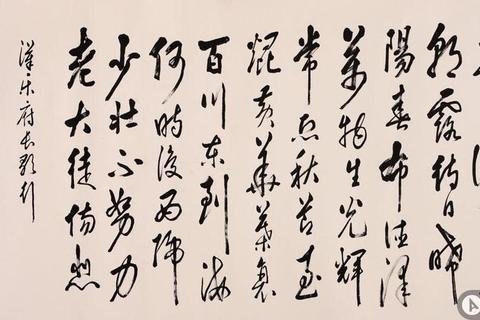 朝露待日晞
陽春布德澤
萬物生光輝
常恐秋節至
焜黃華葉衰
百川東到海
何時復西歸
少壯不努力
老大徒傷悲
漢樂府長歌行